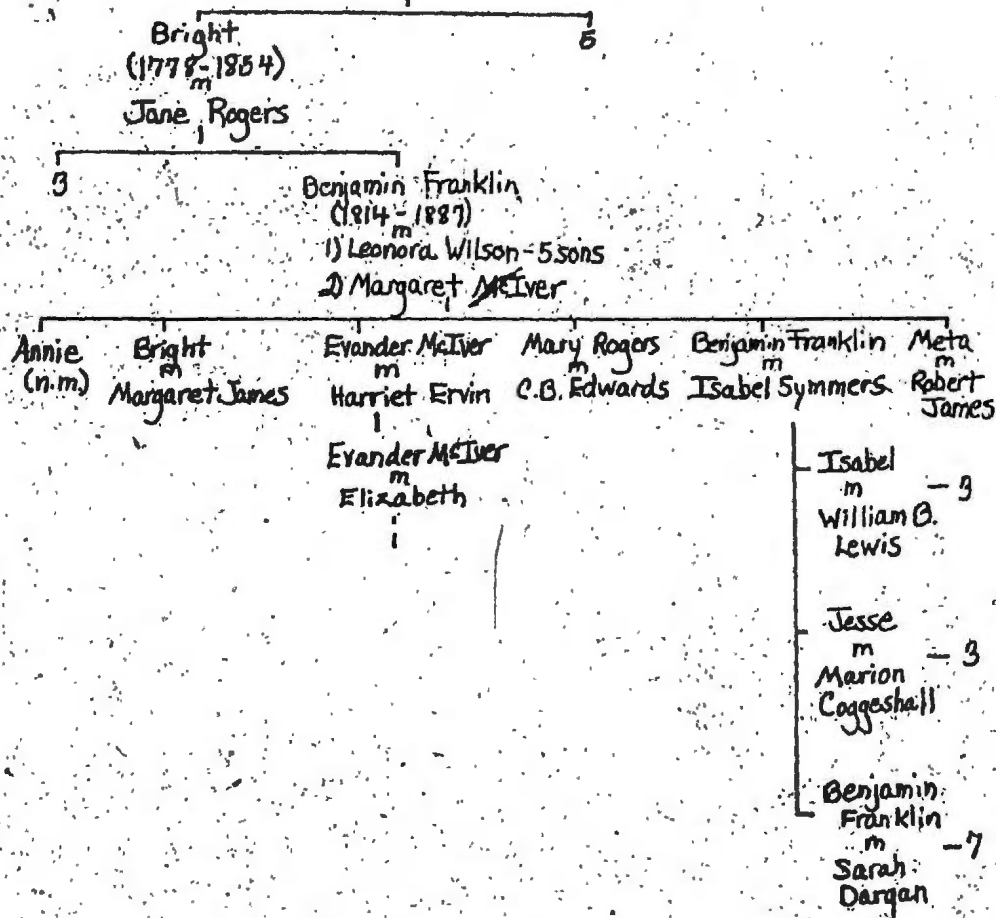 5
Bright
(1778-1854)
m
Jane Rogers
3
Benjamin Franklin
(1814-1887)
m
1) Leonora Wilson-5 sons
2) Margaret McIver
Annie
(n.m.)
Bright
m
Margaret James
Evander McIver
m
Harriet Ervin
Evander McIver
m
Elizabeth
1
Mary Rogers
m
C.B. Edwards
Benjamin Franklin
m
Isabel Symmers
Isabel
m - 3
William B.
Lewis
Jesse
m - 3
Marion
Coggeshall
Benjamin
Franklin
m - 7
Sarah
Dargan
Meta
m
Robert
James